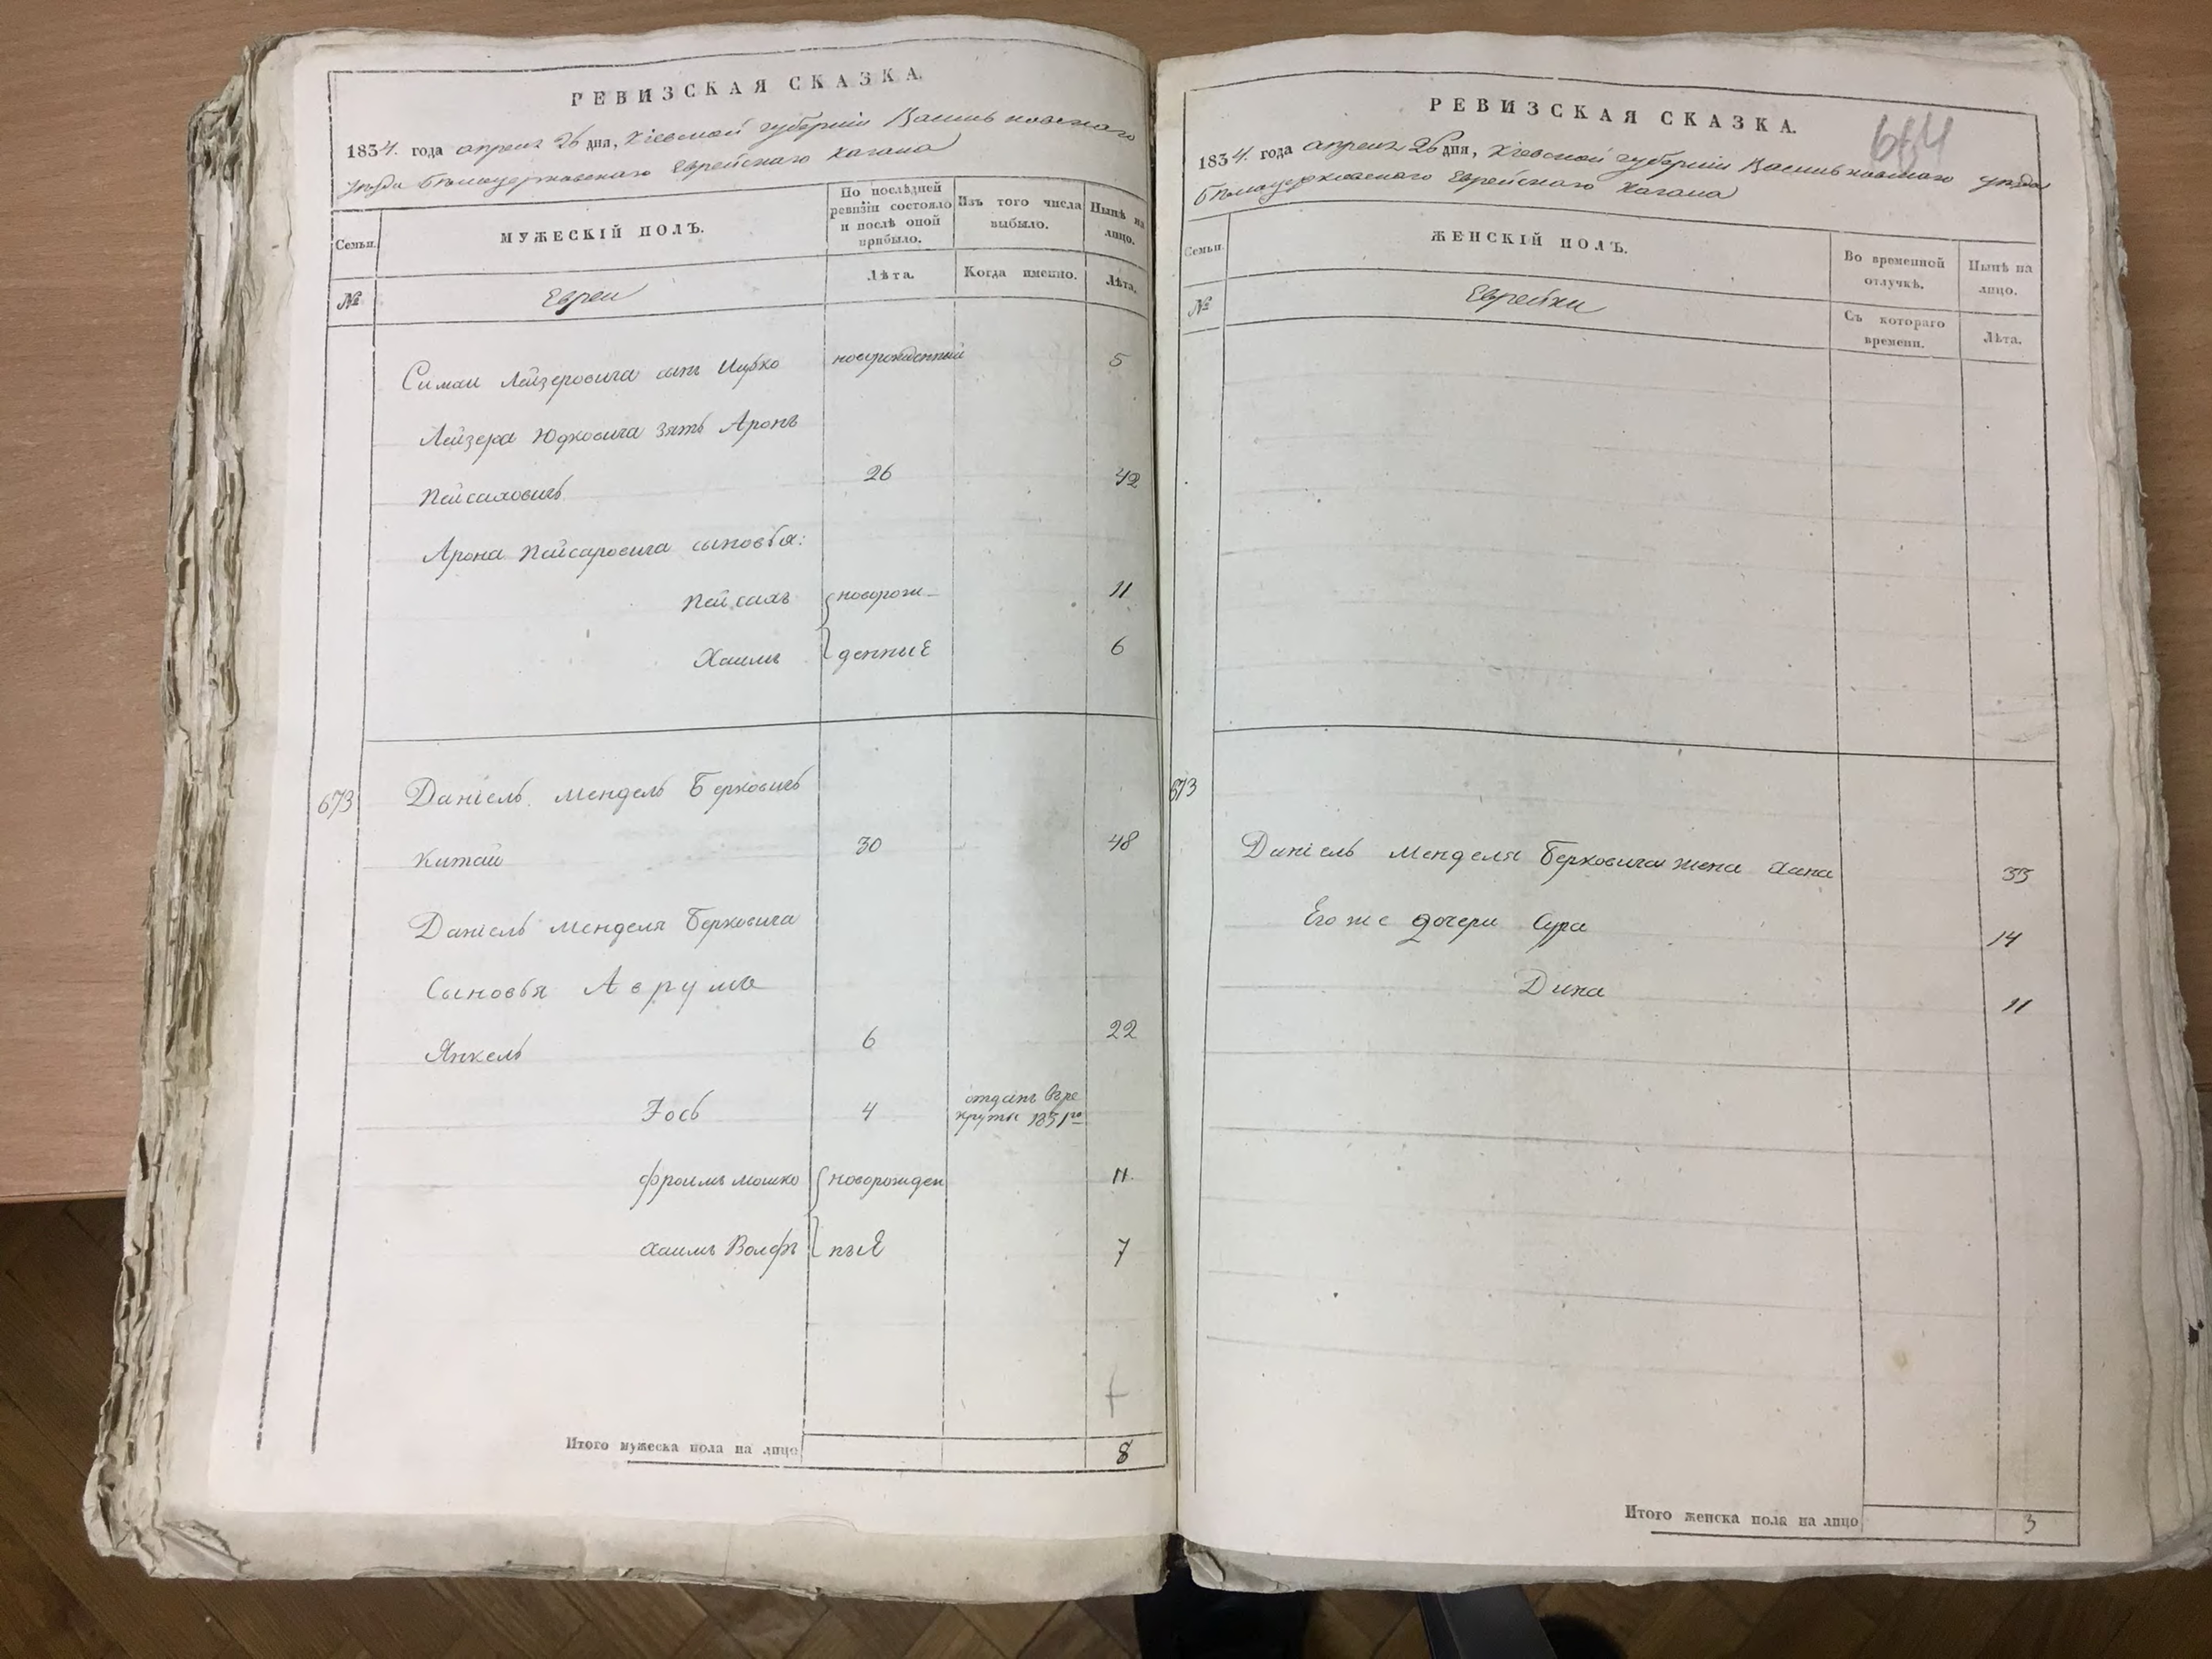 РЕВИЗСКАЯ СКАЗКА.
1834. года апреля 26 дня, Кіевской губерніи Васильковского
уѣзда Бѣлоцерковского Еврейского Кагала
Семьи.
МУЖЕСКІЙ ПОЛЪ.
По послѣдней ревизіи состояло и послѣ оной прибыло.
Изъ того числа выбыло.
Нынѣ на лицо.
№
Евреи
Лѣта.
Когда именно.
Лѣта.
Симхи Лейзеровича сынъ Ицко новорожденный 5
Лейзера Юдковича зять Аронъ
Пейсаховичъ 26 42
Арона Пейсаховича сыновья:
Пейсахъ новорож- 11
Хаимъ денные 6
673 Даніель Мендель Берковичъ
Китай 30 48
Даніель Менделя Берковича
Сыновья Аврумъ
Янкель 6 22
Іось 4 отданъ въ ре
круты 1831го
Фроимъ Мошко новорожден 11.
Хаимъ Волфъ ные 7
Итого мужеска пола на лицо 8
РЕВИЗСКАЯ СКАЗКА.
644
1834. года апреля 26 дня, Кіевской губерніи Васильковского уѣзда
Бѣлоцерковского Еврейского Кагала
Семьи.
ЖЕНСКІЙ ПОЛЪ.
Во временной отлучкѣ.
Нынѣ на лицо.
№
Еврейки
Съ котораго времени.
Лѣта.
673
Даніель Менделя Берковича жена Хана 33
Его же дочери Сура 14
Дина 11
Итого женска пола на лицо 3